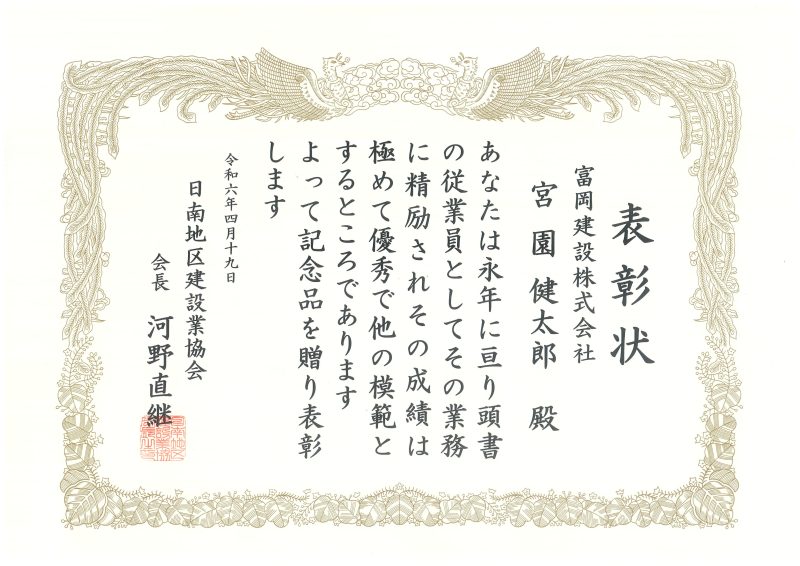 表彰状
富岡建設株式会社
宮園健太郎 殿
あなたは永年に亘り頭書
の従業員としてその業務
に精励されその成績は
極めて優秀で他の模範と
するところであります
よって記念品を贈り表彰
します
令和六年四月十九日
日南地区建設業協会
会長 河野直継